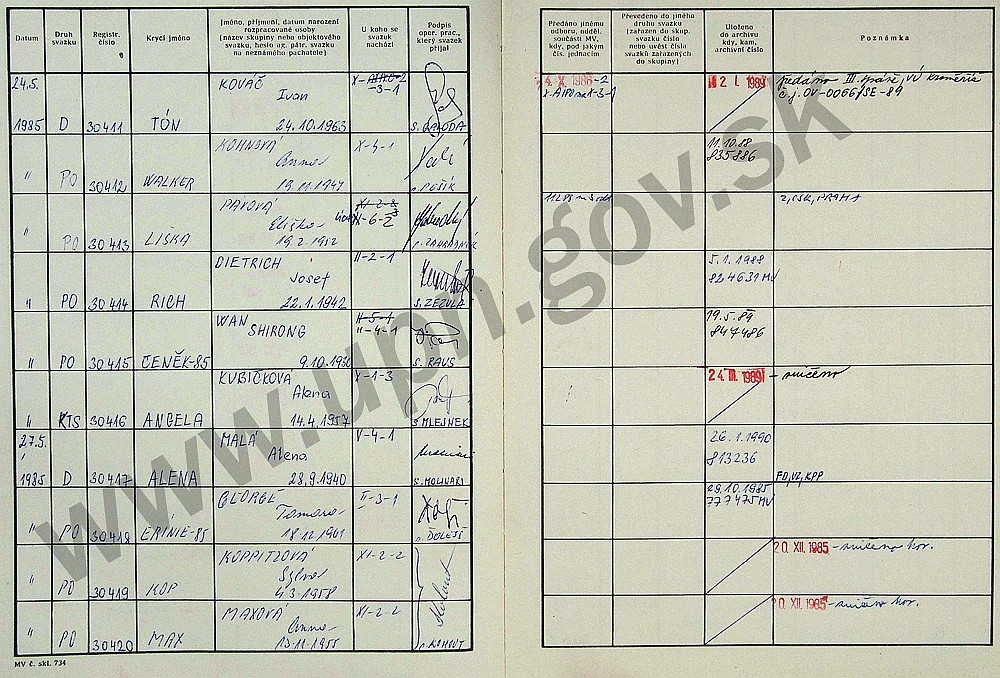 Datum
Druh svazku
Registr. číslo
Krycí jméno
Jméno, příjmení, datum narození
rozpracované osoby
(název skupiny nebo objektového
svazku, heslo ag. pátr. svazku
na neznámého pachatele)
U koho se
svazek
nachází
Podpis
oper. prac.,
který svazek
přijal
Předáno jinému
odboru, odděl.
součásti MV,
kdy, pod jakým
čís. jednacím
Převedeno do jiného
druhu svazku
(zařazen do skup.
svazku číslo
nebo uvést čísla
svazků zařazených
do skupiny)
Uloženo
do archivu
kdy, kam,
archivní číslo
Poznámka
24.5.
1985 D 30411 TÓN
KOVÁČ
Ivan
24.10.1963
-3-1
2. I. 1989
č.j. OV-0066/SE-89
" PO 30412 WALKER
KOHNOVÁ
Anna
19.11.1947
X-4-1
s. PEŠÍK
11.10.88
835886
" PO 30413 LIŠKA
Eliška
19.2.1952
XI-6-2
s. ZAHRADNÍK
" PO 30414 RICH
DIETRICH
Josef
22.1.1942
II-2-1
s. ZEZULA
5.1.1988
824631 MV
" PO 30415 ČENĚK-85
WAN
SHIRONG
II-5-1
II-4-1
s. RAUS
19.5.89
847486
" KTS 30416 ANGELA
KUBIČKOVA
Alena
14.4.1957
X-1-3
s. MLEJNEK
24. III. 1989 - zničeno
27.5.
1985 D 30417 ALENA
MALÁ
Alena
28.9.1940
V-4-1
s. MOLNARI
26.1.1990
813236
FO, VZ, KPP
" PO 30418 ERINIE-85
GEORGE
Tamara
II-3-1
29.10.1985
777475 MV
" PO 30419 KOP
KOPPITZOVÁ
XI-2-2
20. XII. 1985 - zničeno
" PO 30420 MAX
MAXOVÁ
Anna
XI-2-2
s. KOHOUT
XII. 1985 - zničeno
MV č. skl. 734
www.upn.gov.sk